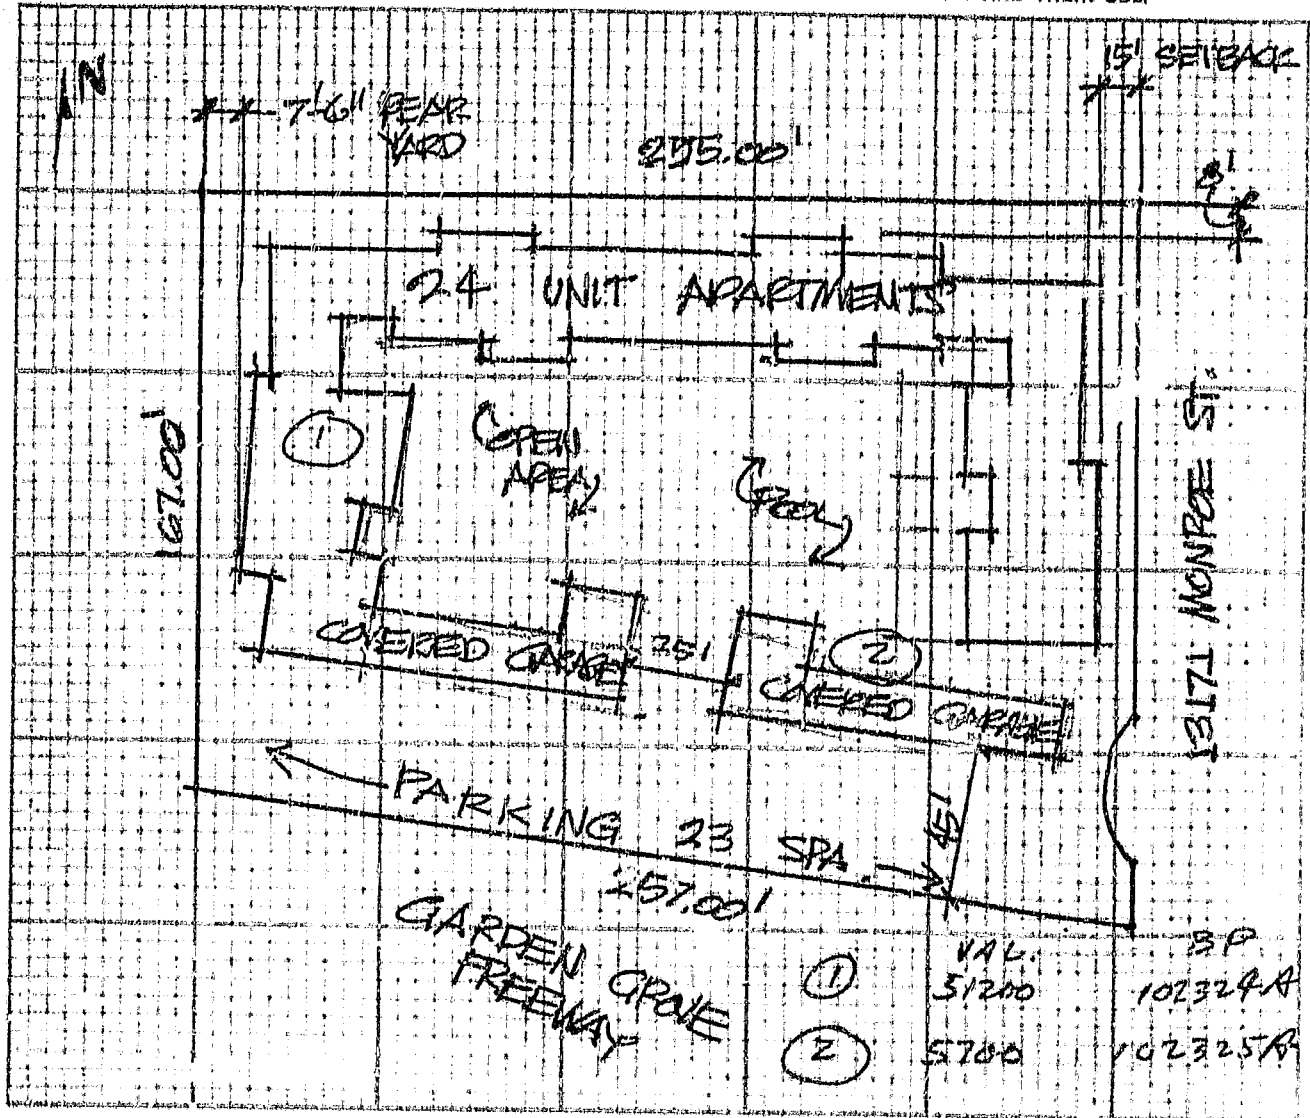 N
15' SETBACK
7'-6" REAR
YARD
255.00'
8'
24 UNIT APARTMENTS
1
OPEN
AREA
POOL
167.00'
13171 MONROE ST.
COVERED GARAGE
25'
2
COVERED GARAGE
PARKING 23 SPA.
45'
257.00'
GARDEN GROVE
FREEWAY
VAL. BP
1 51200 102324A
2 5700 102325A